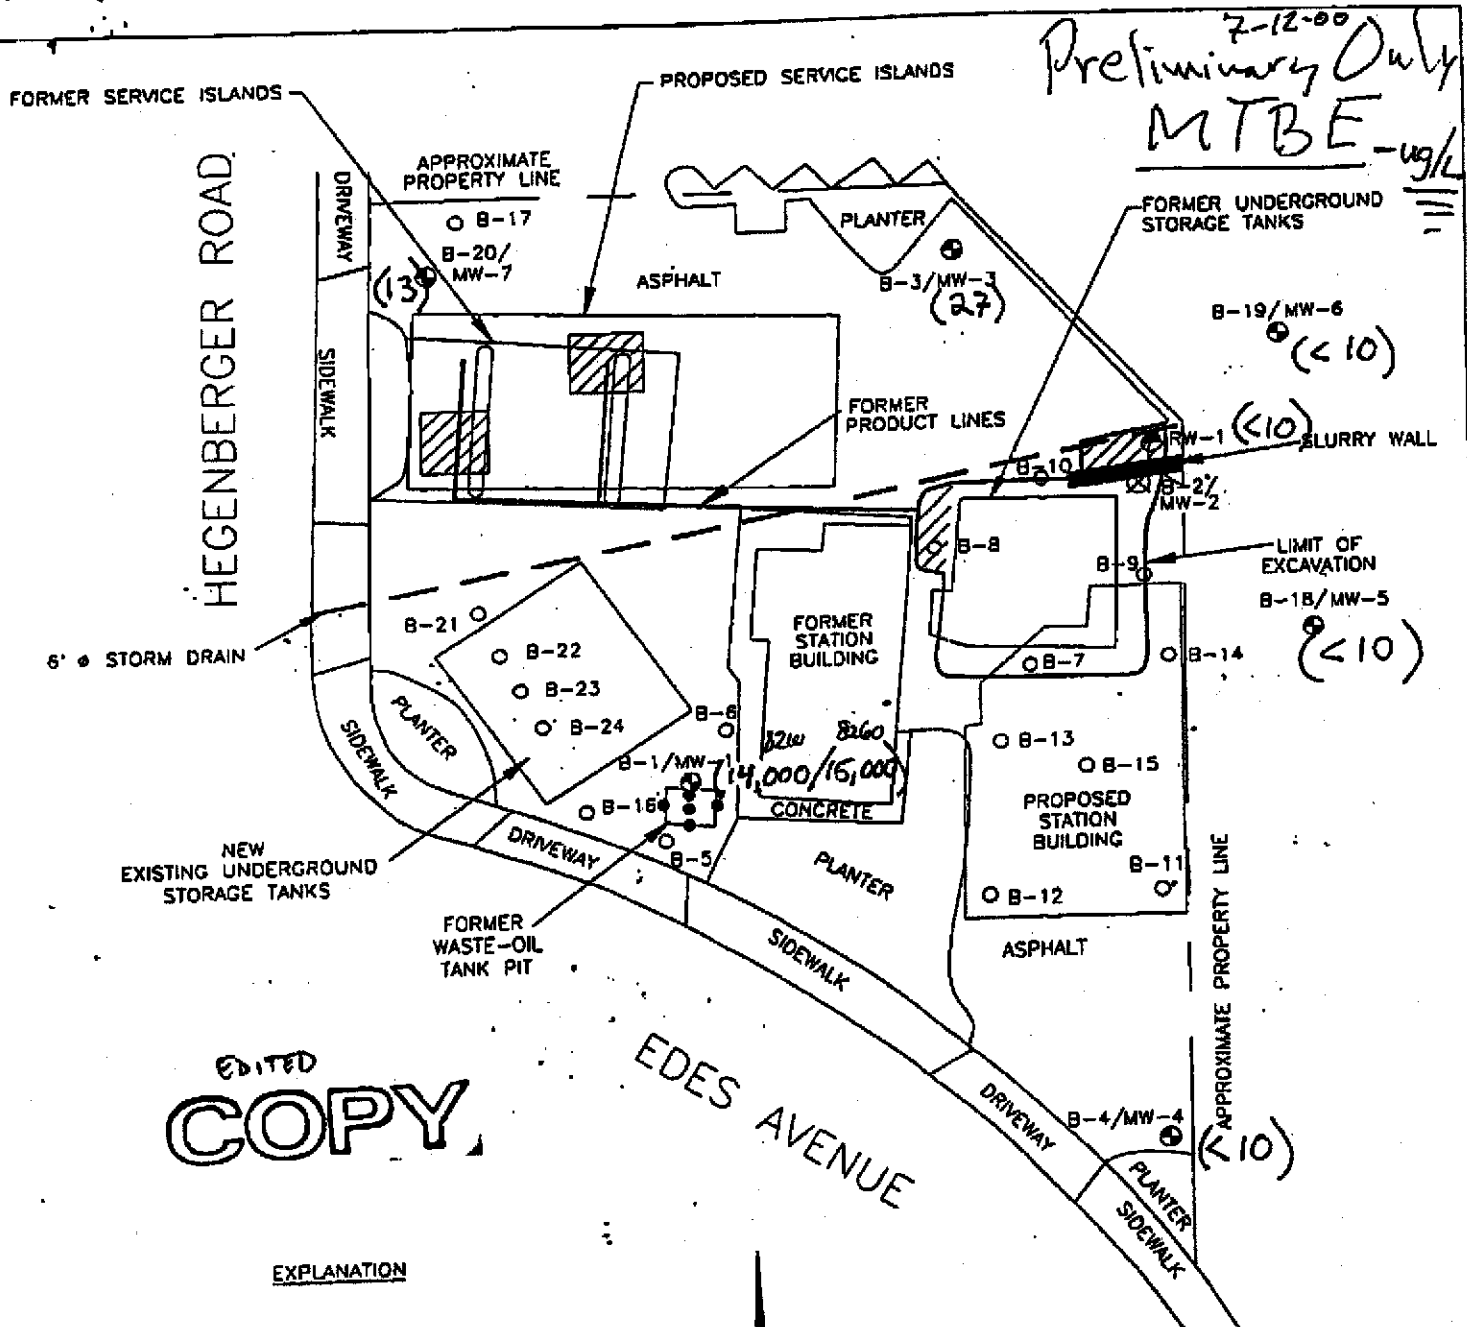 7-12-00
Preliminary Only
MTBE - ug/L
FORMER SERVICE ISLANDS
PROPOSED SERVICE ISLANDS
HEGENBERGER ROAD
DRIVEWAY
SIDEWALK
APPROXIMATE
PROPERTY LINE
B-17
B-20/
MW-7
(13)
ASPHALT
PLANTER
B-3/MW-3
(27)
FORMER UNDERGROUND
STORAGE TANKS
B-19/MW-6
(<10)
FORMER
PRODUCT LINES
RW-1 (<10)
SLURRY WALL
B-10
B-2/
MW-2
B-8
B-9
LIMIT OF
EXCAVATION
B-18/MW-5
(<10)
B-21
6' ø STORM DRAIN
B-22
B-23
B-24
FORMER
STATION
BUILDING
B-7
B-14
PLANTER
SIDEWALK
B-6
8260
B-1/MW-1
(14,000/15,000)
B-13
B-15
B-16
CONCRETE
PROPOSED
STATION
BUILDING
DRIVEWAY
B-5
PLANTER
NEW
EXISTING UNDERGROUND
STORAGE TANKS
B-11
B-12
FORMER
WASTE-OIL
TANK PIT
SIDEWALK
ASPHALT
APPROXIMATE PROPERTY LINE
EDITED
COPY
EDES AVENUE
DRIVEWAY
B-4/MW-4
(<10)
PLANTER
SIDEWALK
EXPLANATION